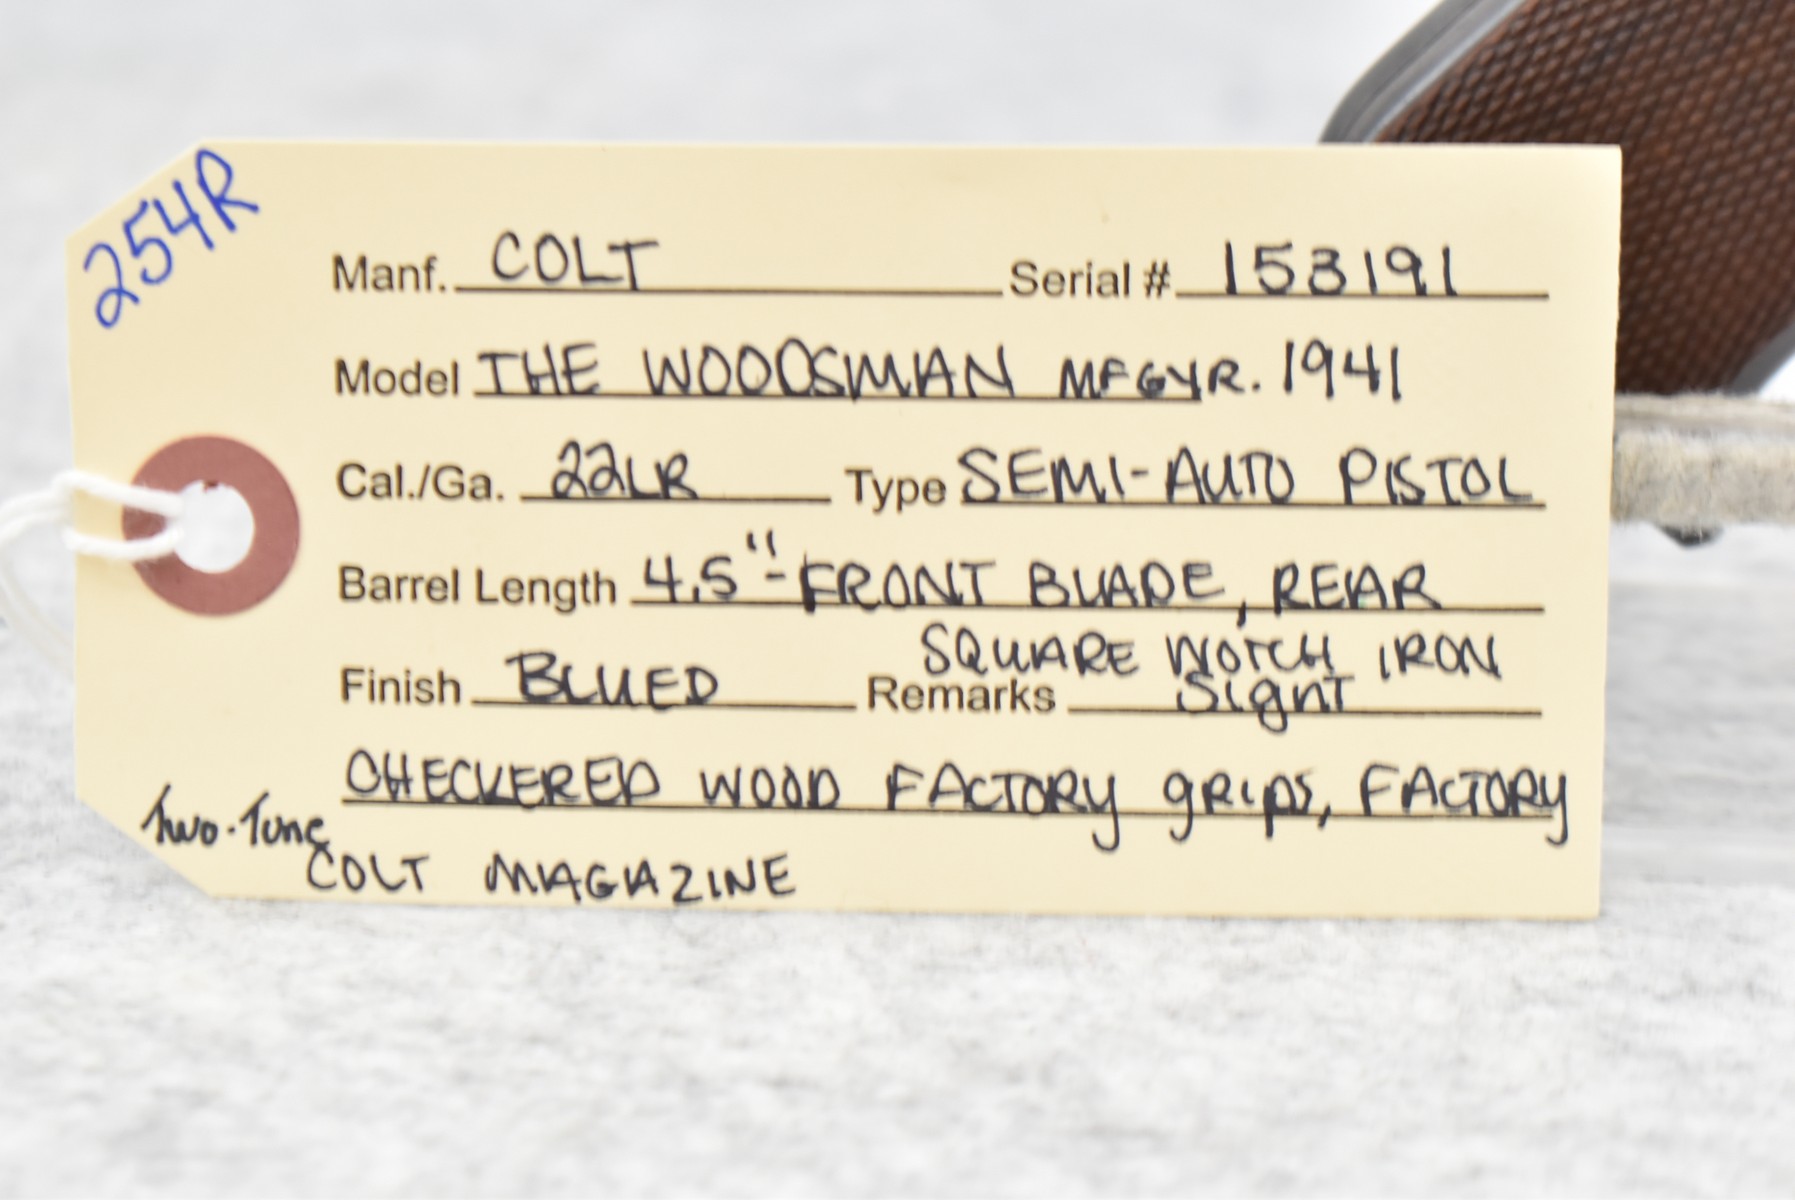 254R
Manf. COLT Serial # 153191
Model THE WOODSMAN MFGYR. 1941
Cal./Ga. 22LR Type SEMI-AUTO PISTOL
Barrel Length 4.5"- FRONT BLADE, REAR
SQUARE NOTCH IRON
Finish BLUED Remarks Sight
CHECKERED WOOD FACTORY grips, FACTORY
Two-Tone
COLT MAGAZINE